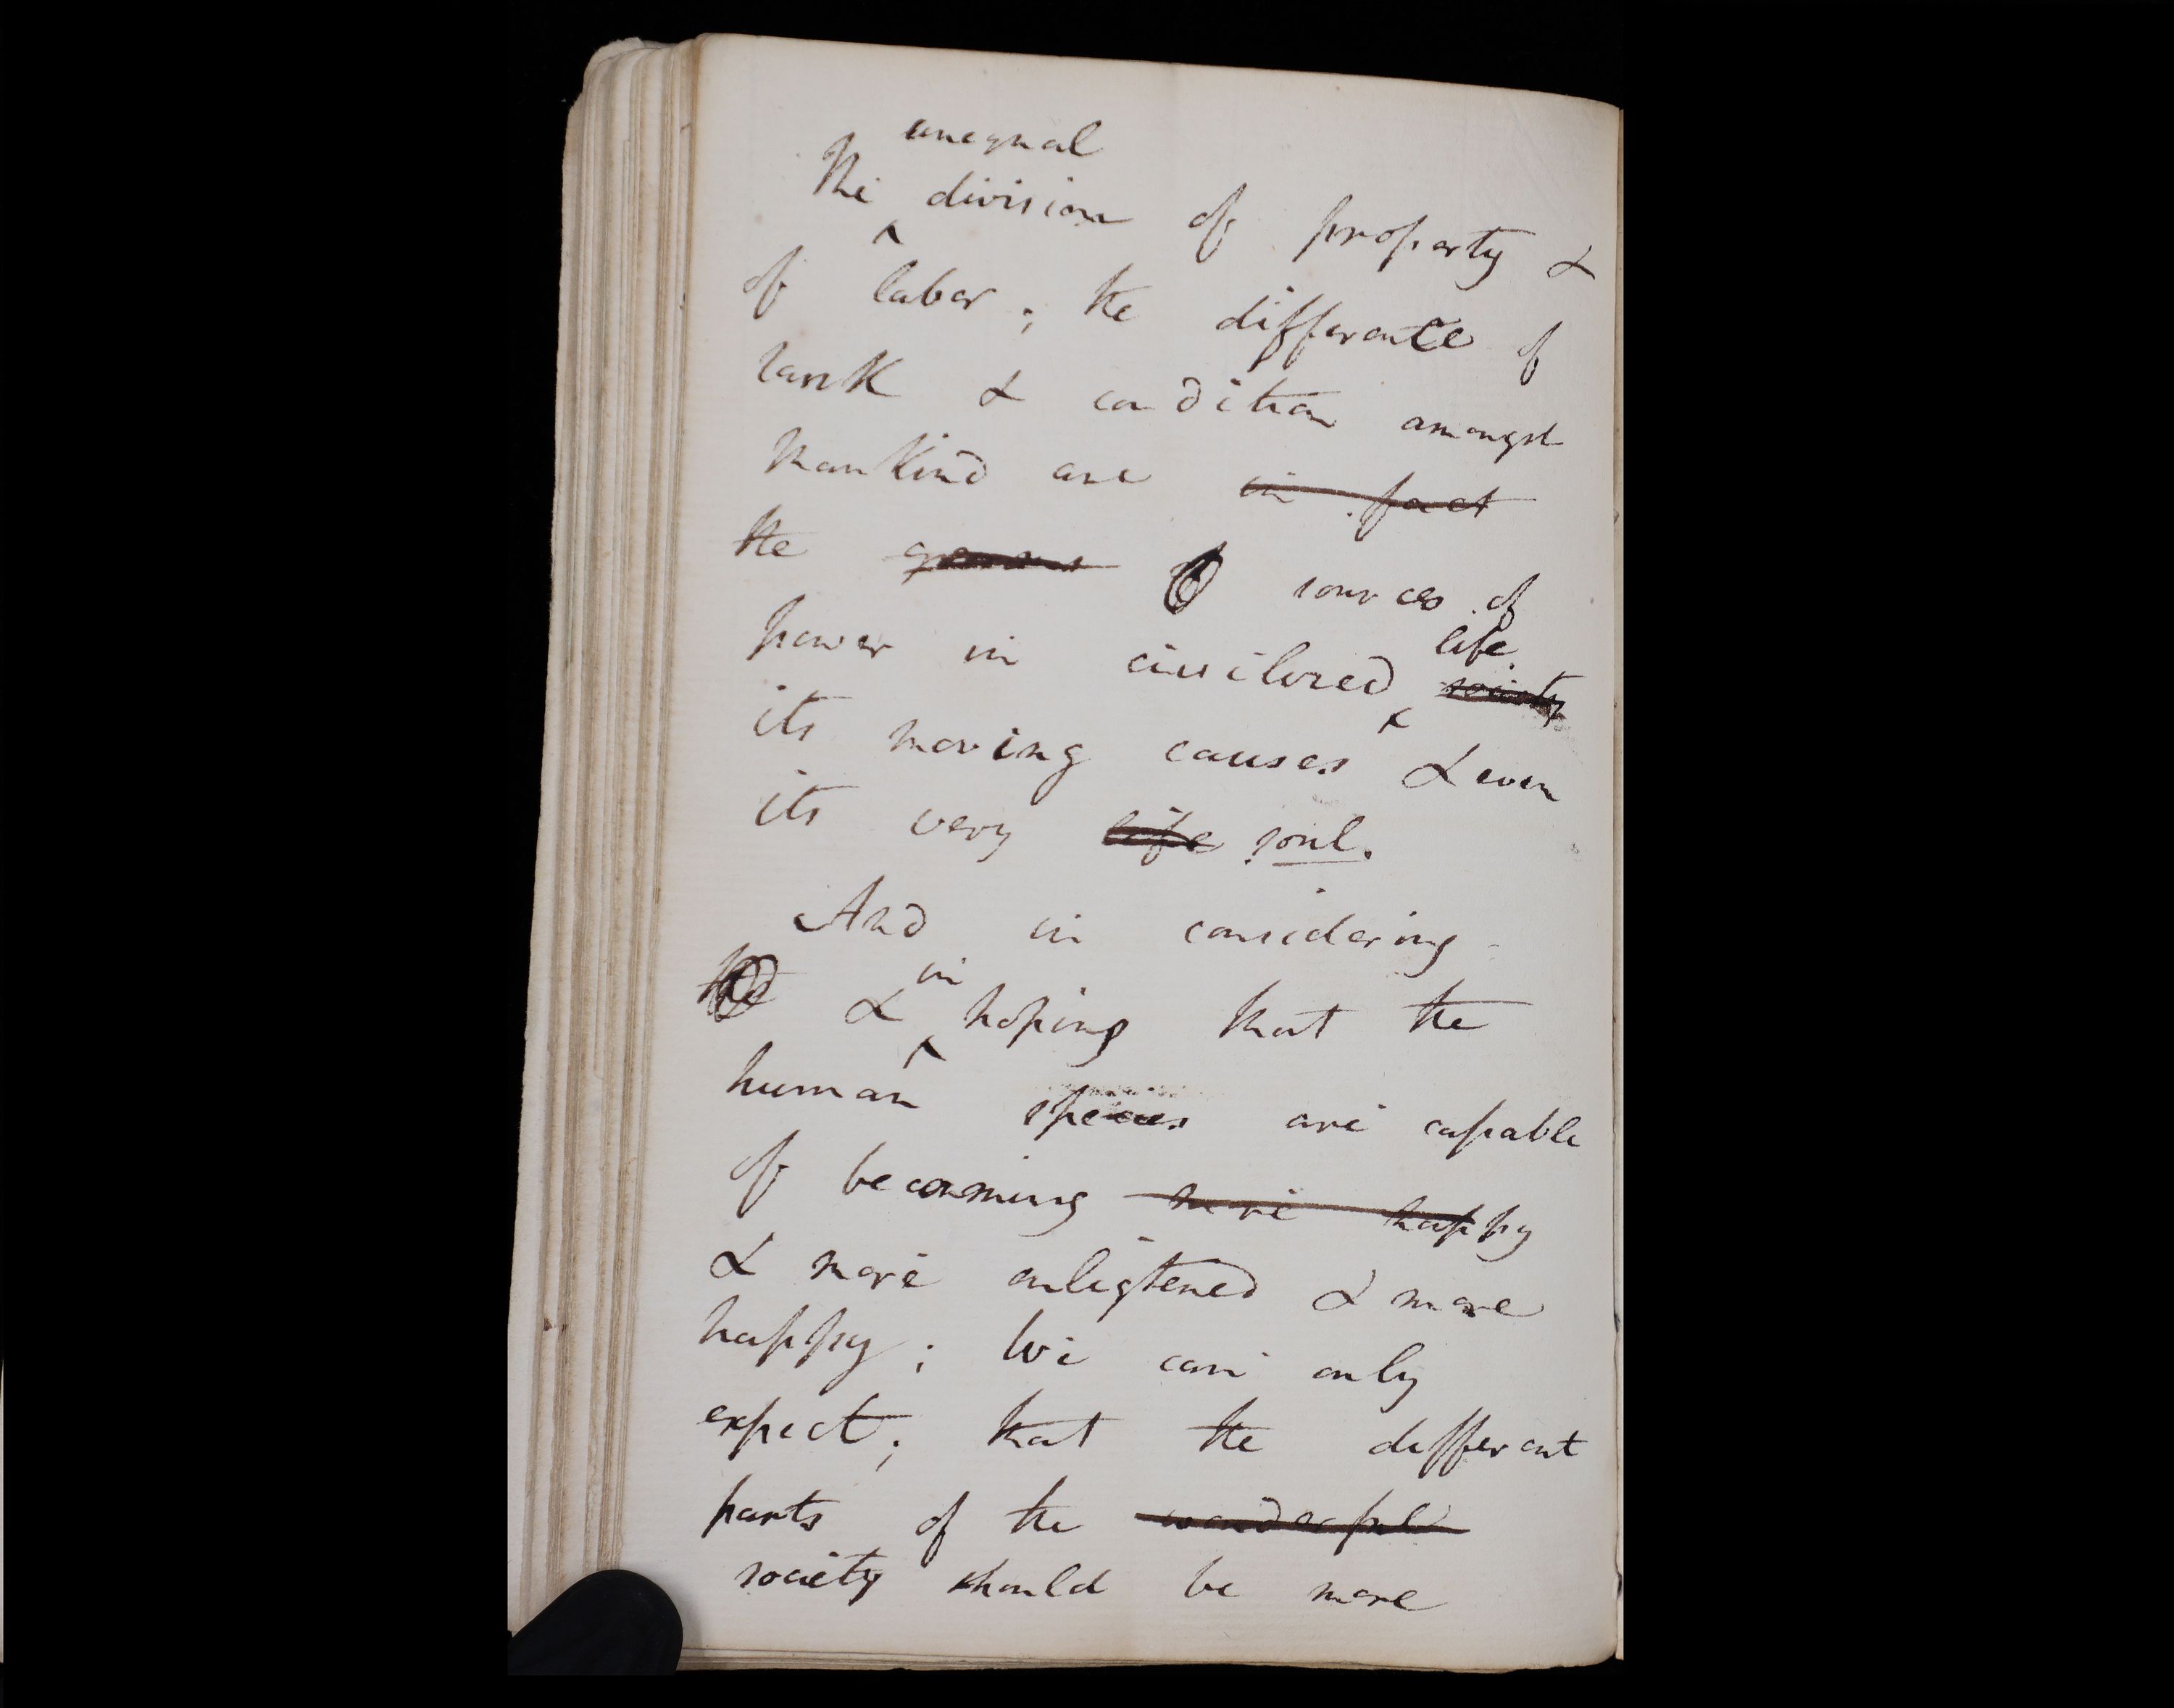 unequal
The division of property &
of labor; the difference of
rank & condition amongst
mankind are in fact
the sources of
life
power in civilized society
its moving causes & even
its very life soul.
And in considering
in
& hoping that the
human species are capable
of becoming more happy
& more enligtened & more
happy; We can only
expect; that the different
parts of the wonderful
society should be more